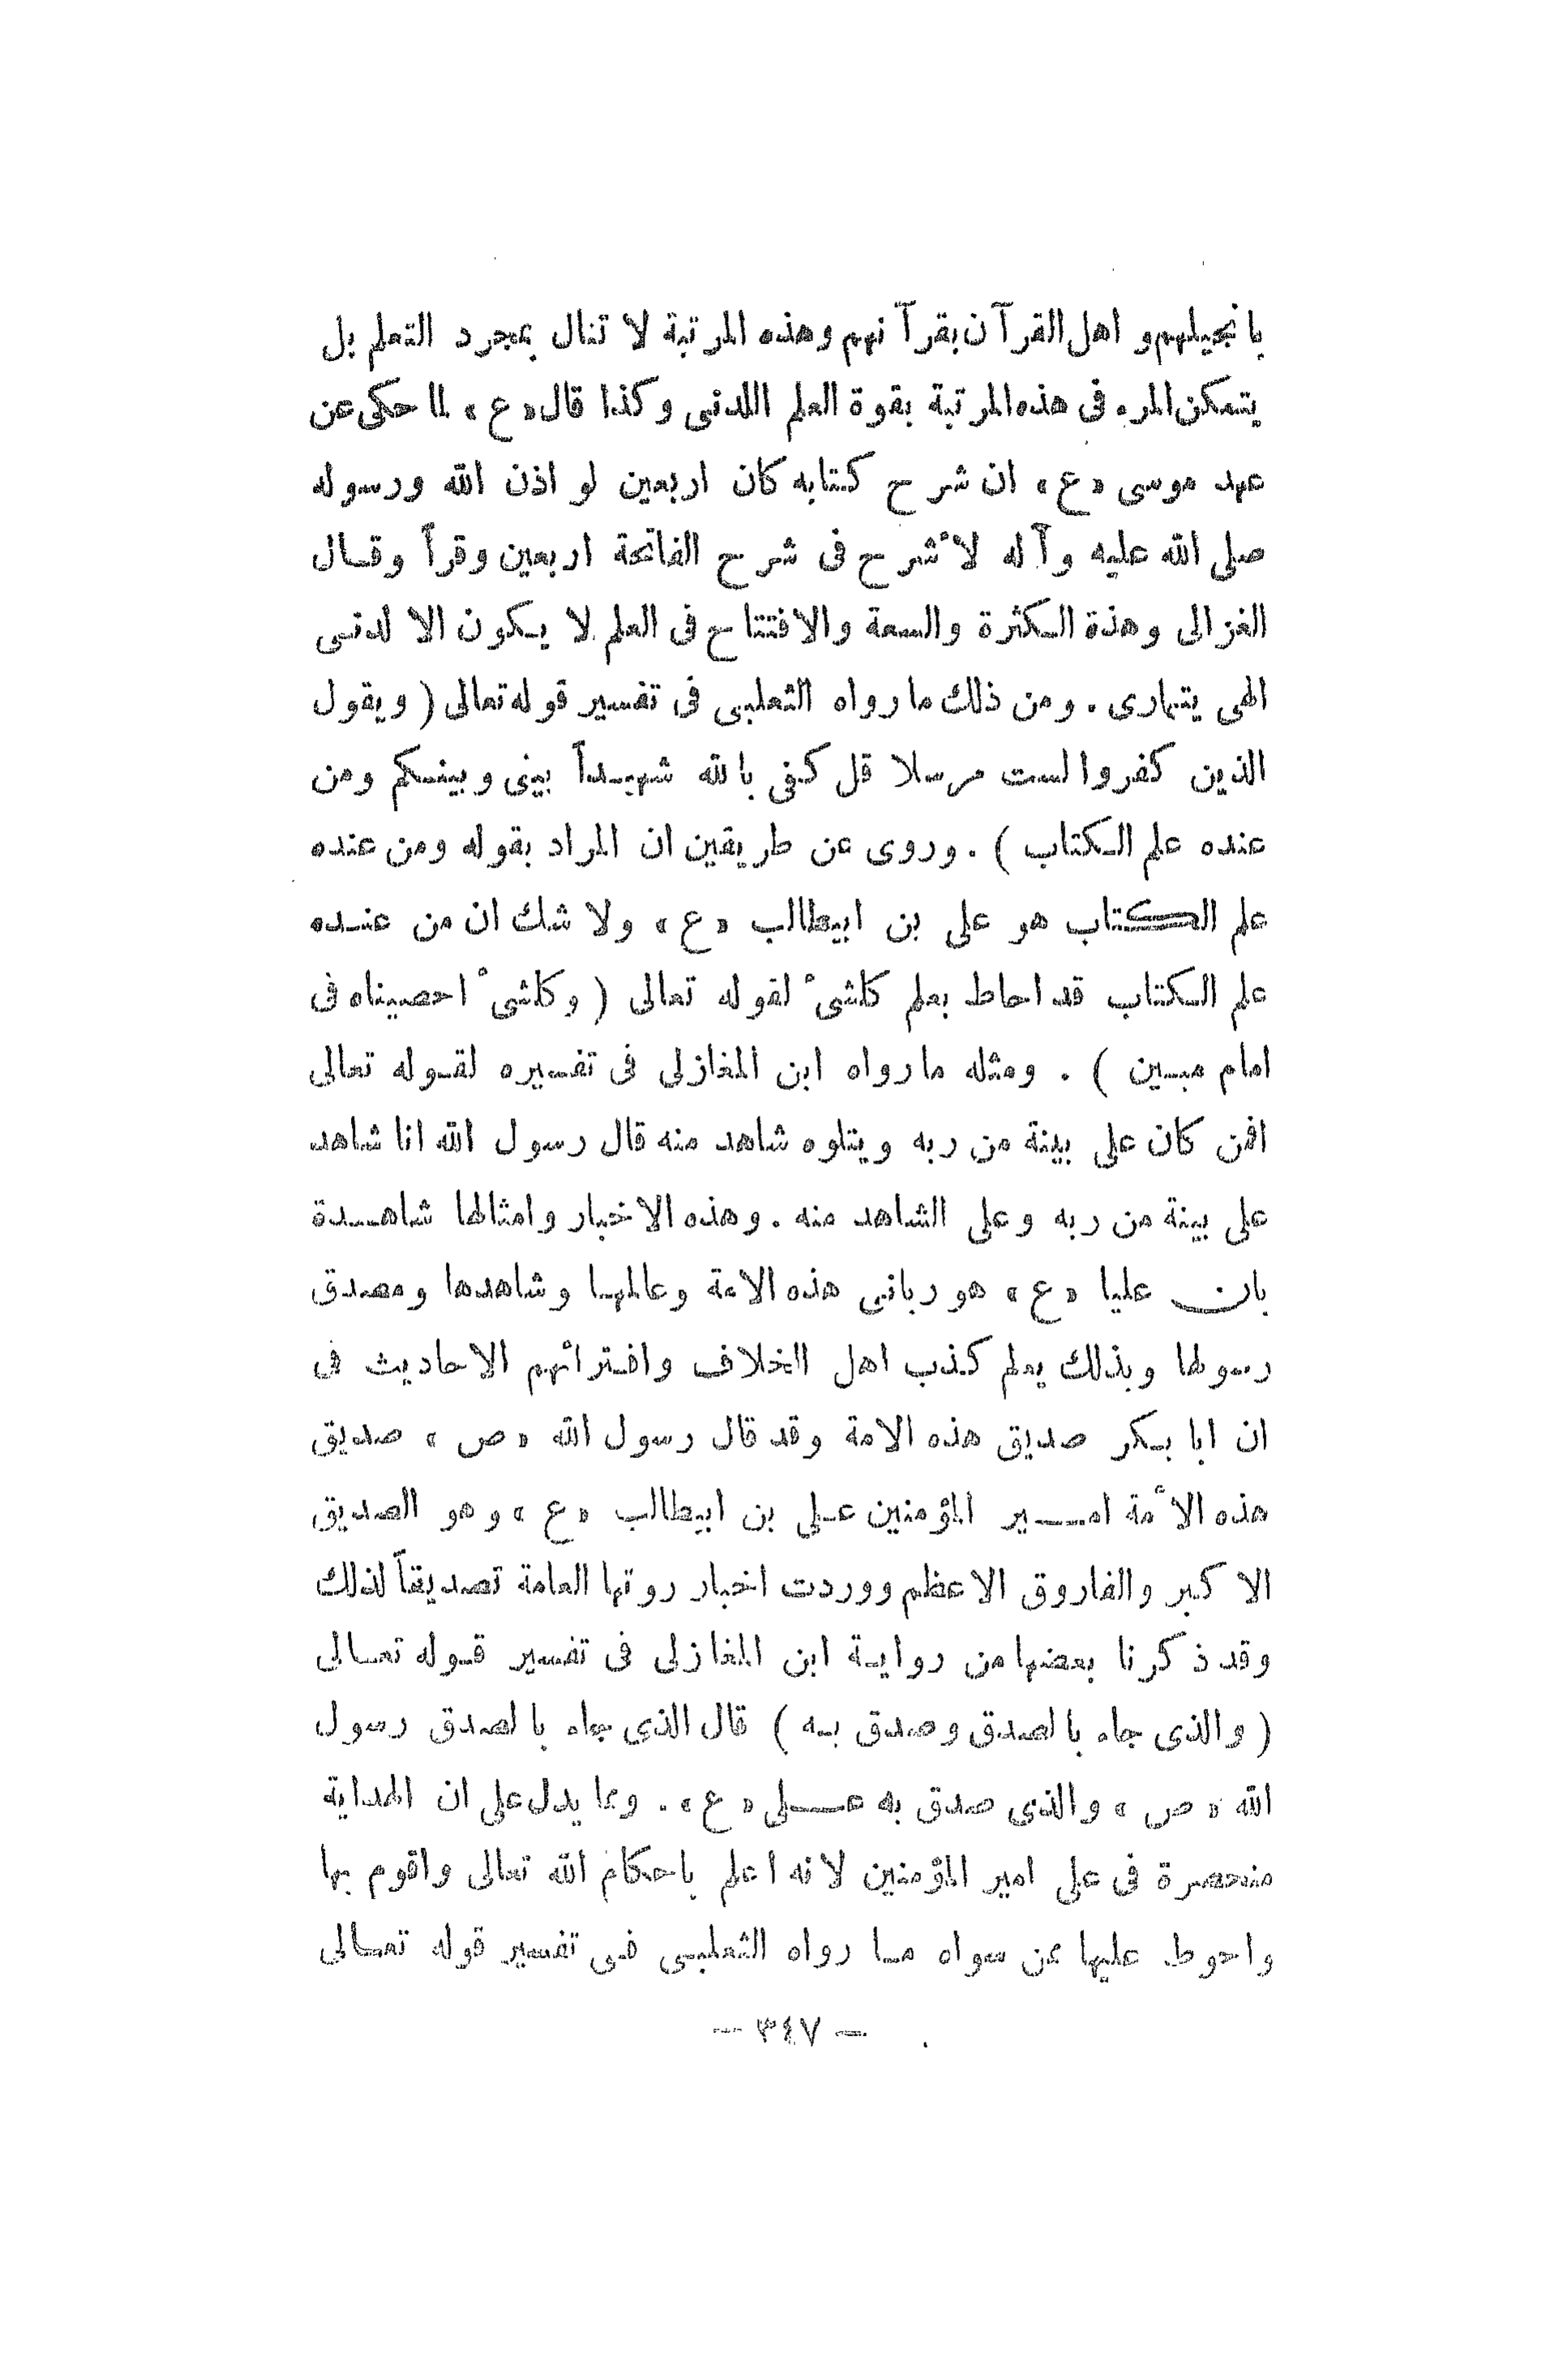 بانجيلهم و اهل القرآن بقرآنهم وهذه المرتبة لا تنال بمجرد التعلم بل
يتمكن المرء فى هذه المرتبة بقوة العلم اللدنى وكذا قال «ع» لما حكى عن
عهد موسى «ع» ان شرح كتابه كان اربعين لو اذن الله ورسوله
صلى الله عليه وآله لأشرح فى شرح الفاتحة اربعين وقراً وقال
الغزالى وهذة الكثرة والسعة والافتتاح فى العلم لا يكون الا لدنى
الهى يتمارى . ومن ذلك ما رواه الثعلبى فى تفسير قوله تعالى ( ويقول
الذين كفروا لست مرسلا قل كفى بالله شهيداً بينى وبينكم ومن
عنده علم الكتاب ) . وروى عن طريقين ان المراد بقوله ومن عنده
علم الكتاب هو على بن ابيطالب «ع» ولا شك ان من عنده
علم الكتاب قد احاط بعلم كلشىْ لقوله تعالى ( وكلشىْ احصيناه فى
امام مبين ) . ومثله ما رواه ابن المغازلى فى تفسيره لقوله تعالى
افمن كان على بينة من ربه ويتلوه شاهد منه قال رسول الله انا شاهد
على بينة من ربه وعلى الشاهد منه . وهذه الاخبار وامثالها شاهدة
بان عليا «ع» هو ربانى هذه الامة وعالمها وشاهدها ومصدق
رسولها وبذلك يعلم كذب اهل الخلاف وافترائهم الاحاديث فى
ان ابا بكر صديق هذه الامة وقد قال رسول الله «ص» صديق
هذه الأمة امير المؤمنين على بن ابيطالب «ع» وهو الصديق
الاكبر والفاروق الاعظم ووردت اخبار روتها العامة تصديقاً لذلك
وقد ذكرنا بعضها من رواية ابن المغازلى فى تفسير قوله تعالى
( والذى جاء بالصدق وصدق به ) قال الذى جاء بالصدق رسول
الله «ص» والذى صدق به على «ع» . ومما يدل على ان الهداية
منحصرة فى على امير المؤمنين لانه اعلم باحكام الله تعالى واقوم بها
واحوط عليها ممن سواه ما رواه الثعلبى فى تفسير قوله تعالى
— ٣٤٧ —